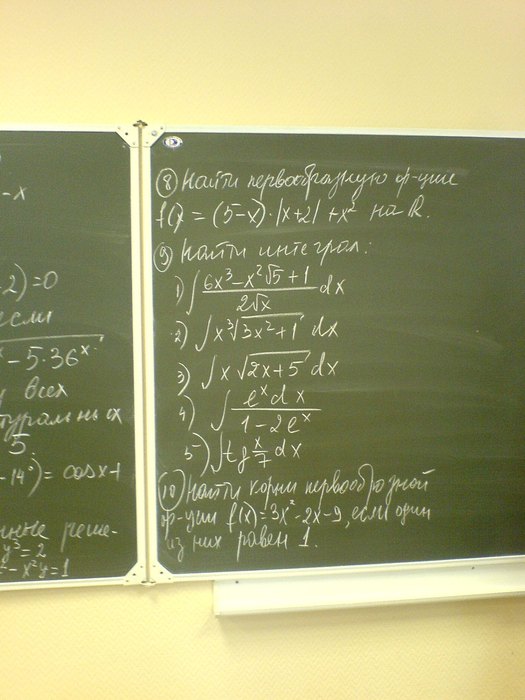 -x
2)=0
если
-5·36ˣ
всех
туральных
5
-14°)=cosx+1
нные реше-
y³=2
-x²y=1
⑧ Найти первообразную ф-ции
f(x) = (5-x)·|x+2|+x² на R.
⑨ Найти интеграл:
1) ∫ (6x³-x²√5+1)/(2√x) dx
2) ∫x∛(3x²+1) dx
3) ∫x√(2x+5) dx
4) ∫ (eˣdx)/(1-2eˣ)
5) ∫tg x/7 dx
⑩ Найти корни первообразной
ф-ции f(x)=3x²-2x-9, если один
из них равен 1.